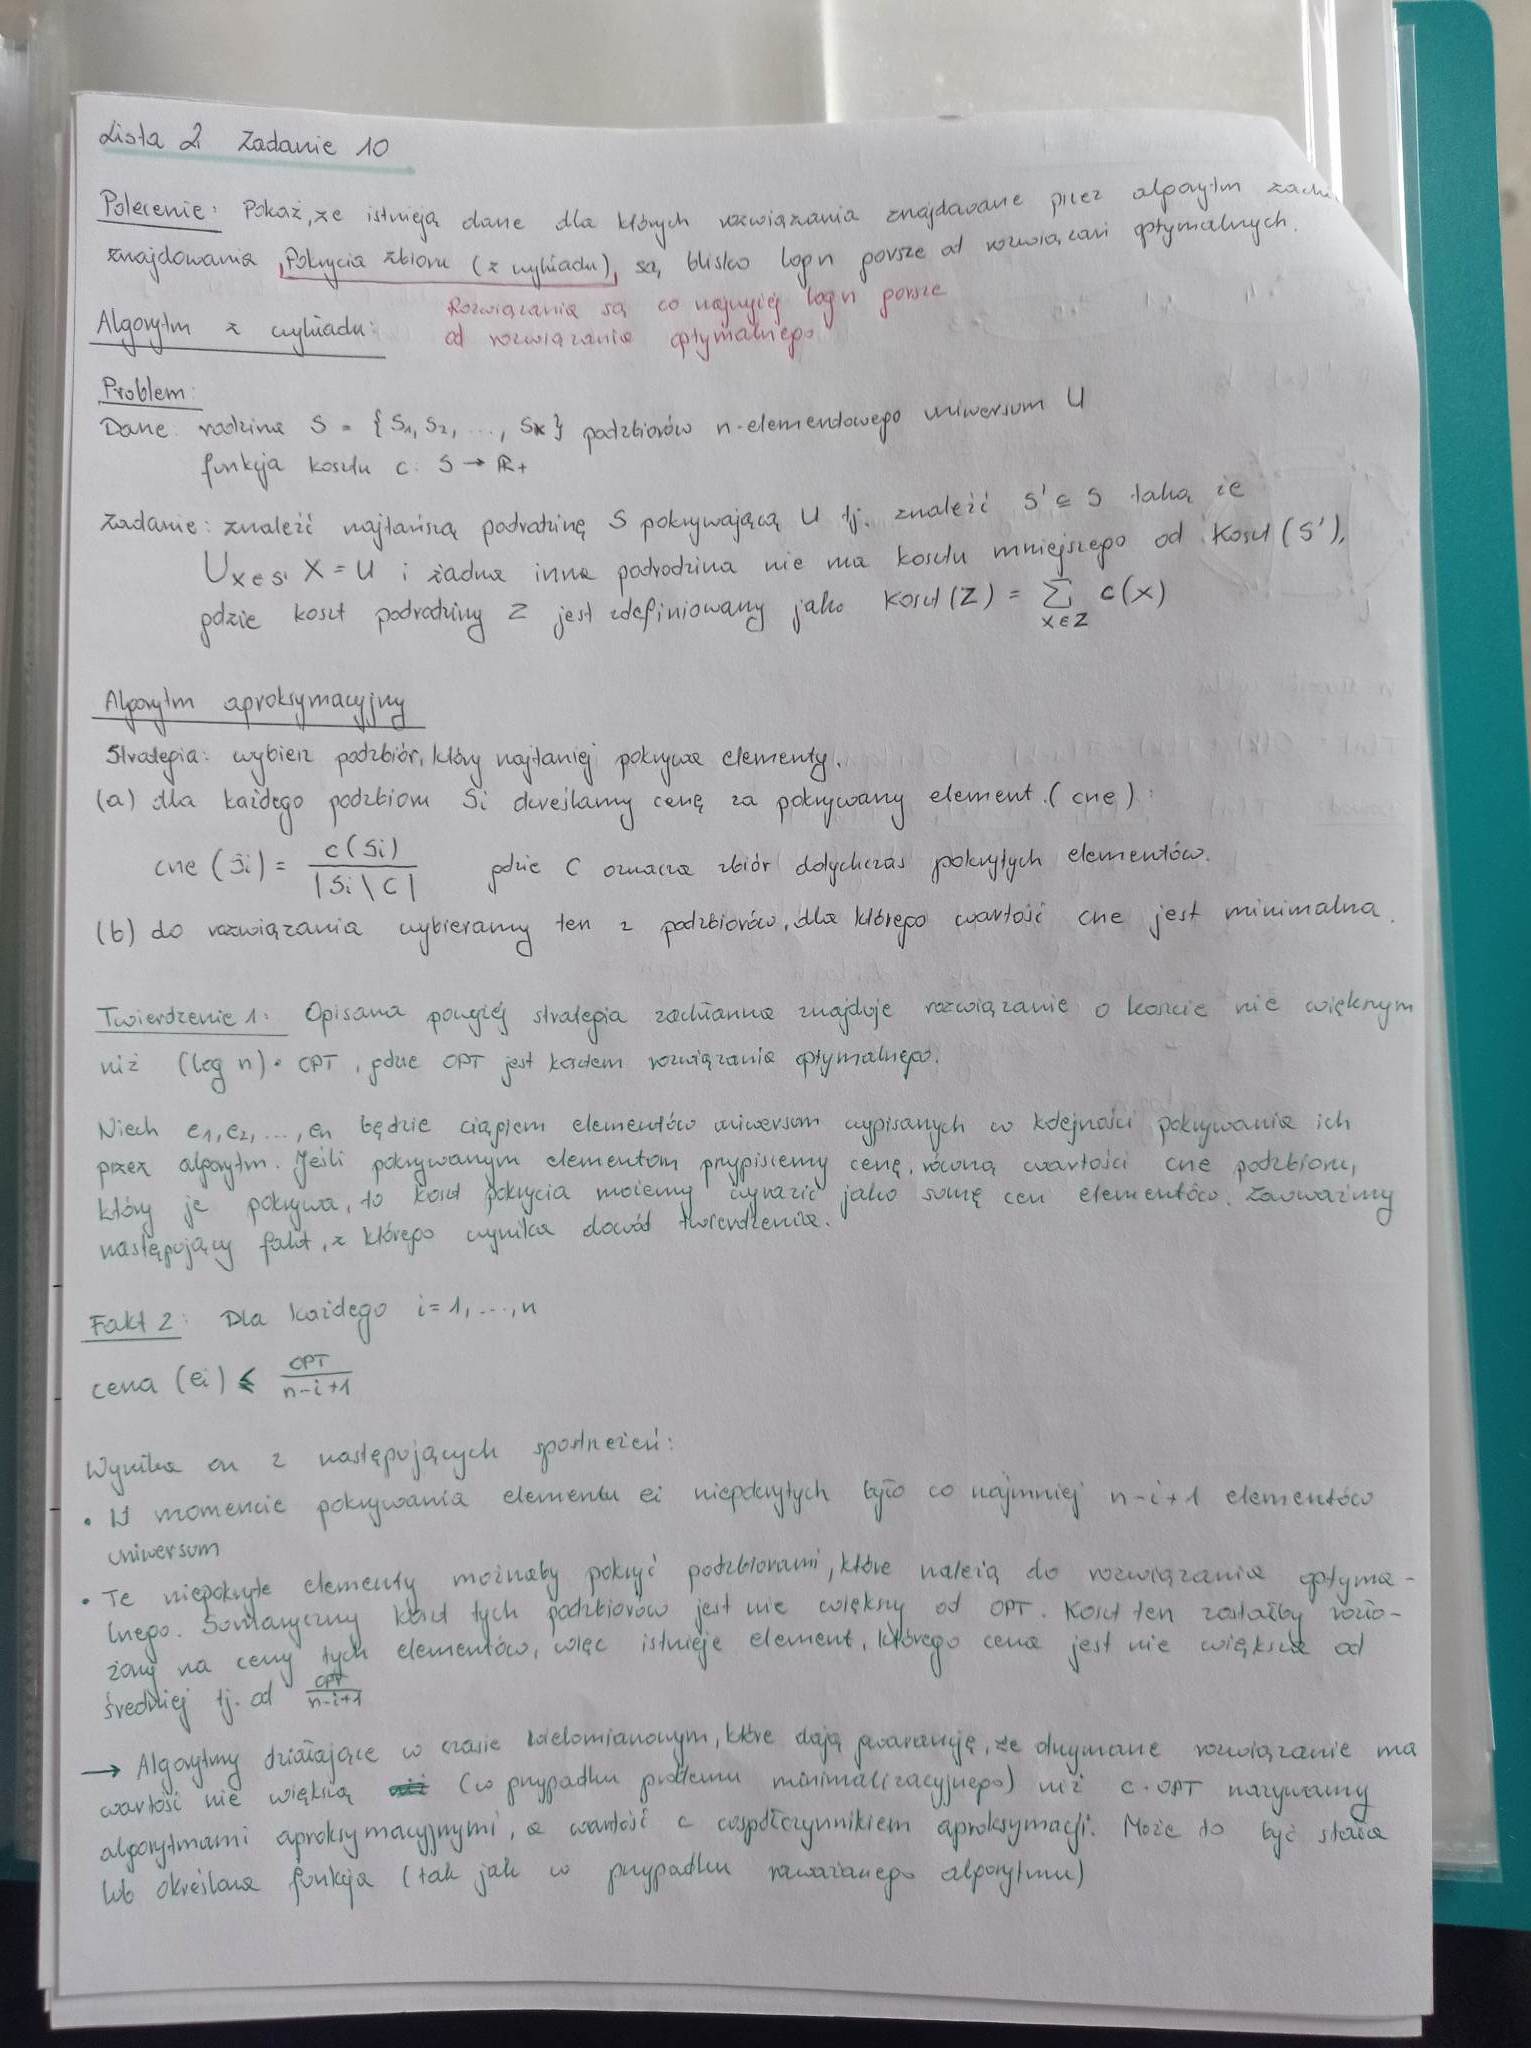 Lista 2 Zadanie 10
Polecenie: Pokaż, że istnieją dane dla których rozwiązania znajdowane przez algorytm zach
znajdowania „Pokrycia zbioru (z wykładu)" są blisko log n gorsze od rozwiązań optymalnych.
Rozwiązania są co najwyżej log n gorsze
od rozwiązania optymalnego
Algorytm z wykładu:
Problem:
Dane: rodzina S = {S1, S2, ..., Sk} podzbiorów n-elementowego uniwersum U
funkcja kosztu c: S → R+
Zadanie: znaleźć najtańszą podrodzinę S pokrywającą U tj. znaleźć S' ⊆ S taką że
⋃X∈S' X = U i żadna inna podrodzina nie ma kosztu mniejszego od Koszt(S'),
gdzie koszt podrodziny Z jest zdefiniowany jako Koszt(Z) = Σ X∈Z c(X)
Algorytm aproksymacyjny
Strategia: wybierz podzbiór, który najtaniej pokrywa elementy.
(a) dla każdego podzbioru Si określamy cenę za pokrywany element (cne):
cne(Si) = c(Si) / |Si \ C| gdzie C oznacza zbiór dotychczas pokrytych elementów.
(b) do rozwiązania wybieramy ten z podzbiorów, dla którego wartość cne jest minimalna.
Twierdzenie 1: Opisana powyżej strategia zachłanna znajduje rozwiązanie o koszcie nie większym
niż (log n) · OPT, gdzie OPT jest kosztem rozwiązania optymalnego.
Niech e1, e2, ..., en będzie ciągiem elementów uniwersum wypisanych w kolejności pokrywania ich
przez algorytm. Jeśli pokrywanym elementom przypiszemy cenę, równą wartości cne podzbioru,
który je pokrywa, to koszt pokrycia możemy wyrazić jako sumę cen elementów. Zauważmy
następujący fakt, z którego wynika dowód twierdzenia.
Fakt 2: Dla każdego i = 1, ..., n
cena (ei) ≤ OPT / n-i+1
Wynika on z następujących spostrzeżeń:
• W momencie pokrywania elementu ei niepokrytych było co najmniej n-i+1 elementów
uniwersum
• Te niepokryte elementy możnaby pokryć podzbiorami, które należą do rozwiązania optyma-
lnego. Sumaryczny koszt tych podzbiorów jest nie większy od OPT. Koszt ten zostałby rozło-
żony na ceny tych elementów, więc istnieje element, którego cena jest nie większa od
średniej tj. od OPT / n-i+1
→ Algorytmy działające w czasie wielomianowym, które dają gwarancję, że otrzymane rozwiązanie ma
wartość nie większą (w przypadku problemu minimalizacyjnego) niż c · OPT nazywamy
algorytmami aproksymacyjnymi, a wartość c współczynnikiem aproksymacji. Może to być stała
lub określona funkcja (tak jak w przypadku rozważanego algorytmu)